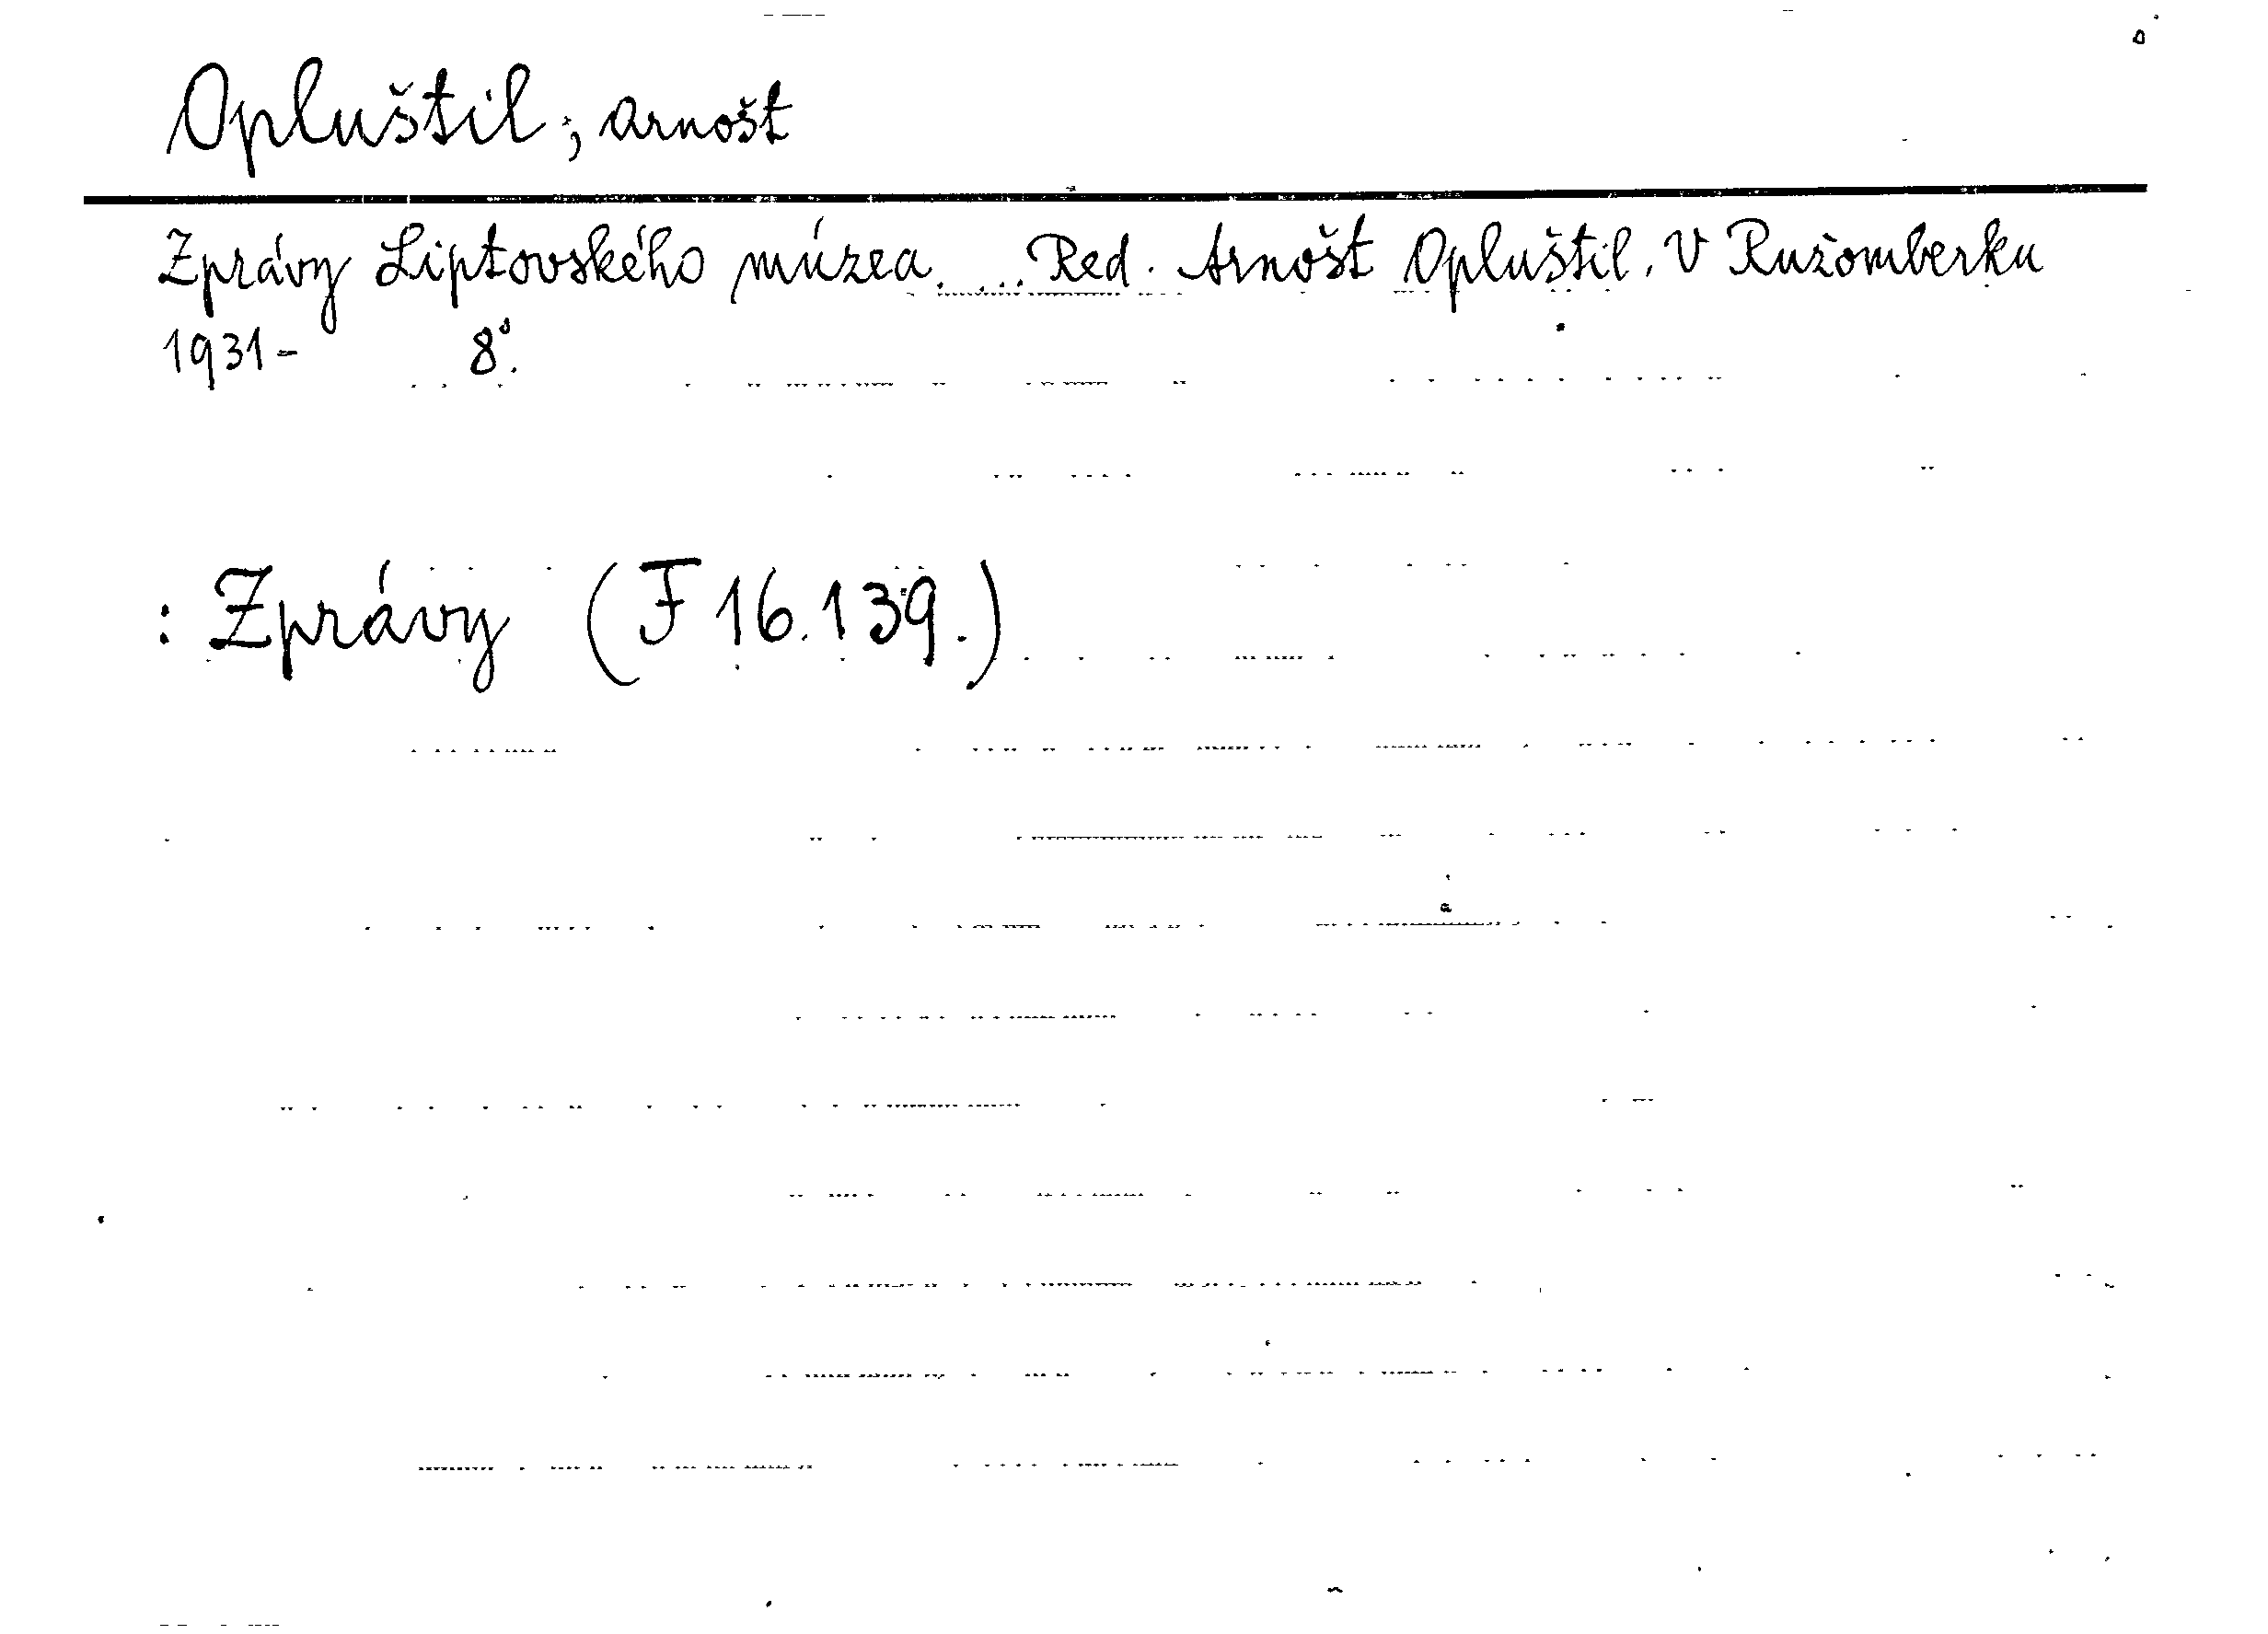 Opluštil, Arnošt
Zprávy Liptovského múzea. ... Red. Arnošt Opluštil. V Ružomberku
1931- 8°.
: Zprávy (F 16.139.)